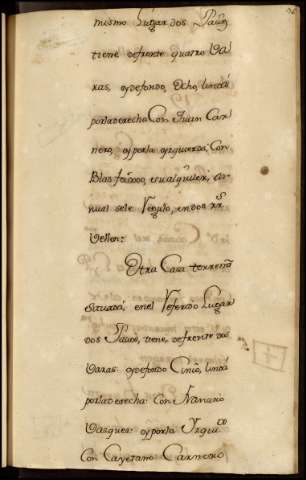 mismo Lugar dos Pauos
tiene defrente quatro Va
ras, y defondo, Ocho, linda
porladerecha Con Juan Car
nero, y porla yzquierda, Con
Blas
nual sele Regulo, endos rr.s
Vellon:
Otra Casa terrena
Situada, enel Referido Lugar
dos Pauos, tiene, defrente dos
Varas y defondo Cinco, linda
porladerecha Con
Vazquez y porla Yzquierda
Con Cayetano Carnero